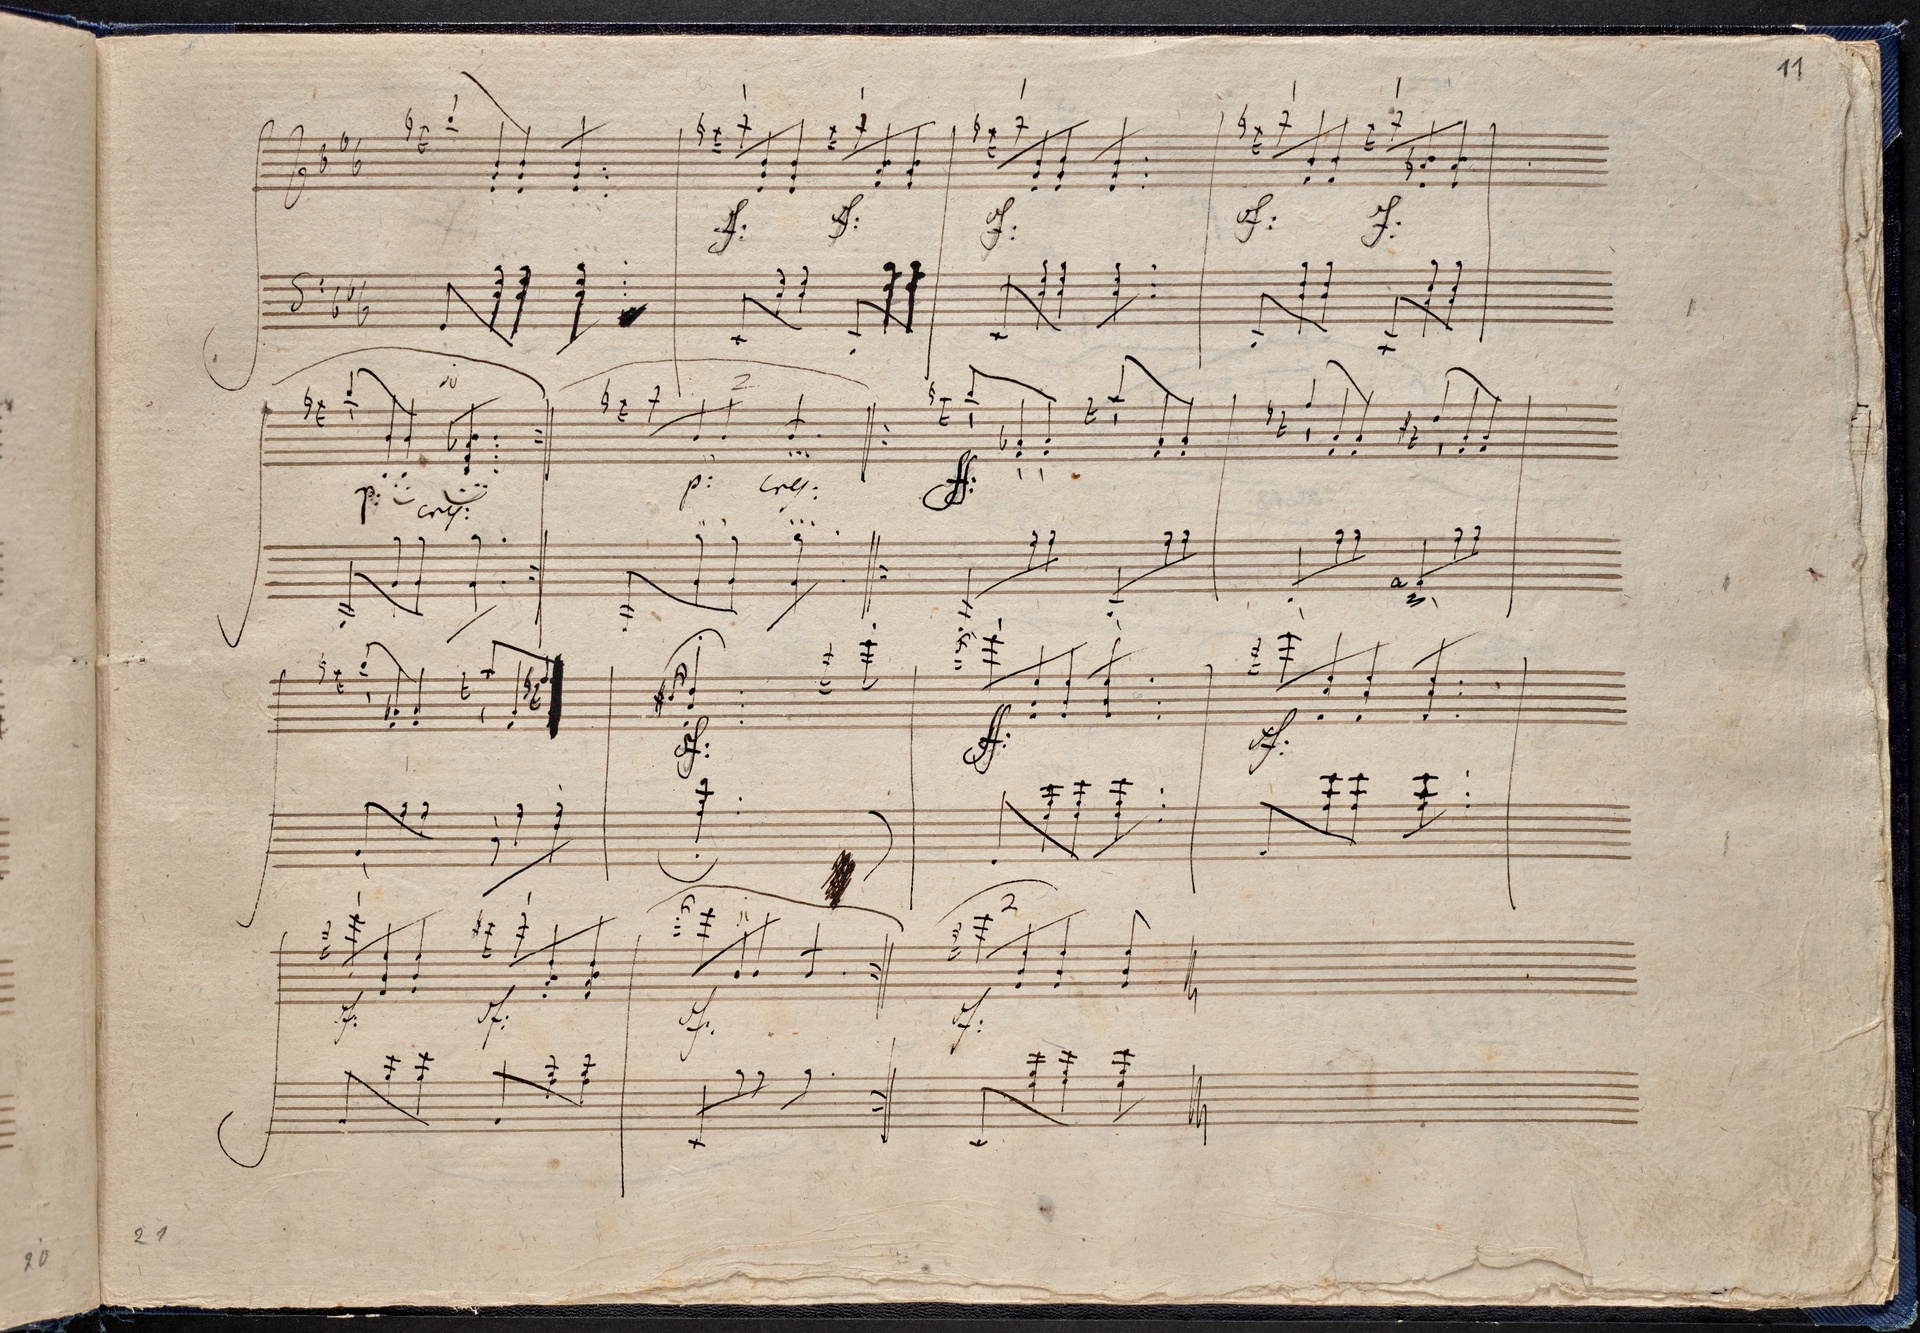 11
sf: sf: sf: sf: sf:
2
p: cres: p: cres: ff:
sf: ff: sf:
2
sf: sf: sf: sf:
21
20